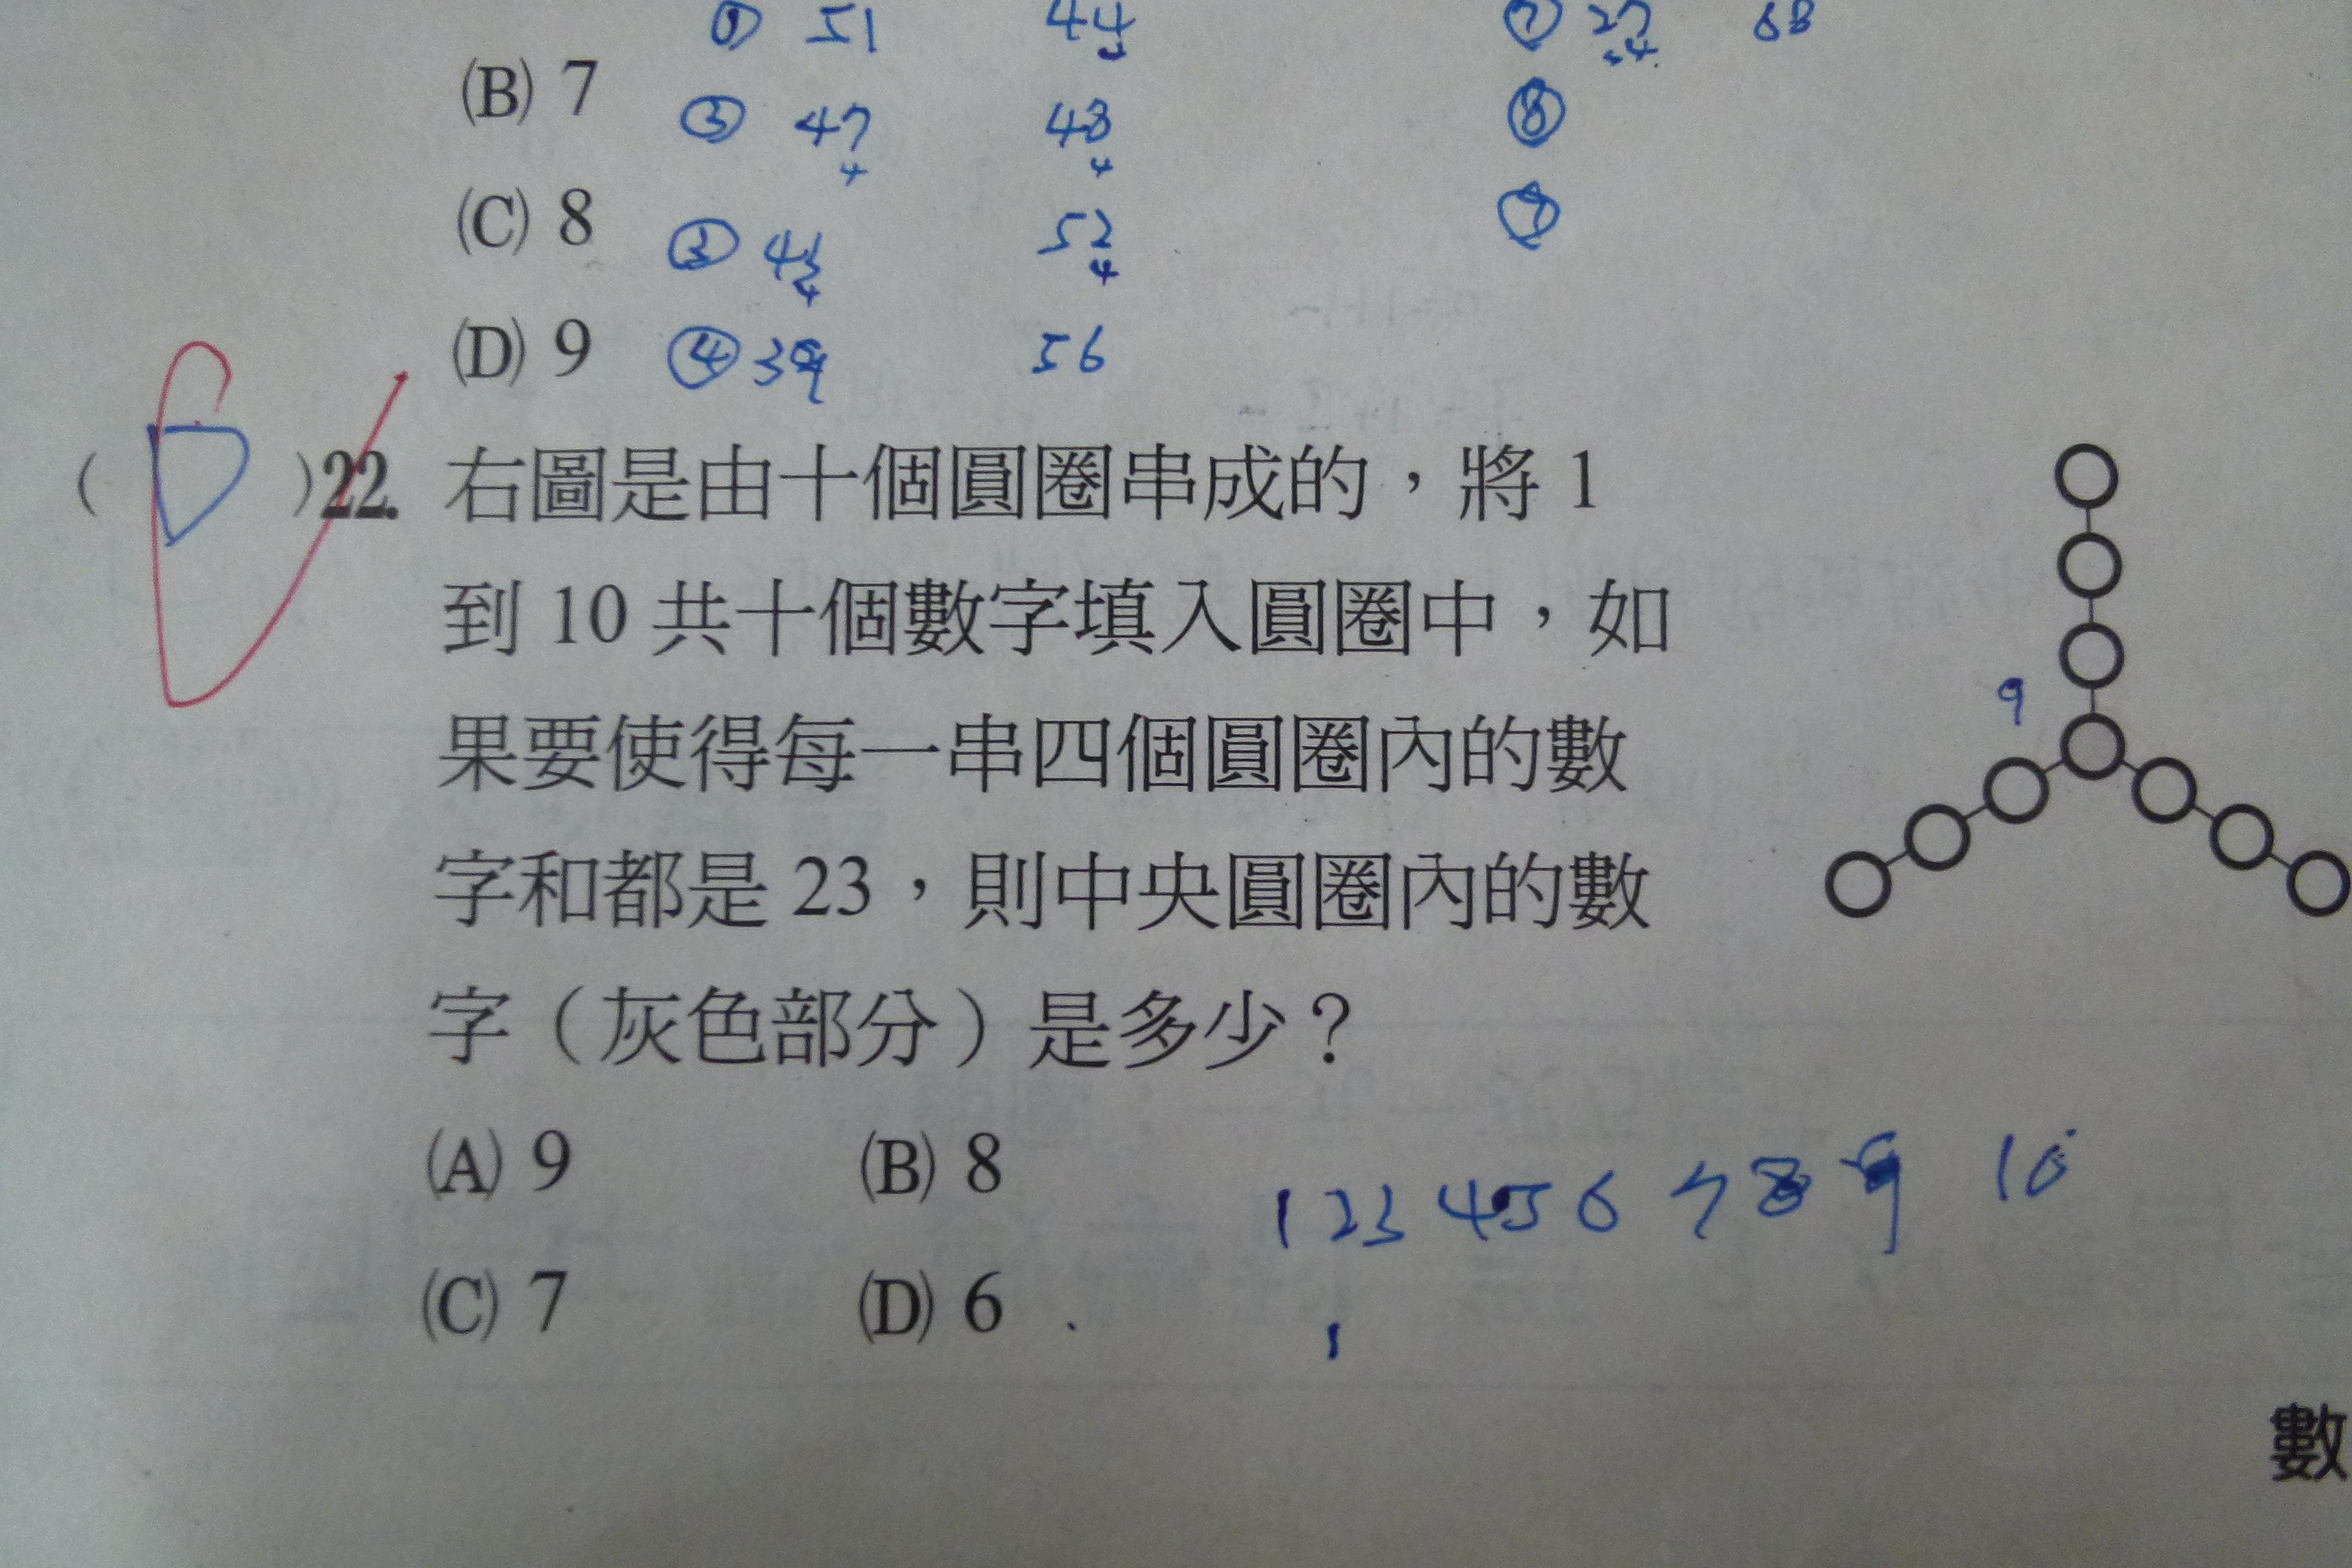 ① 51 44 ⑦ 27 68
(B) 7 ② 47 48 ⑧
4 4
(C) 8 ③ 43 52 ⑨
4 4
(D) 9 ④ 39 56
( D )22. 右圖是由十個圓圈串成的,將 1
到 10 共十個數字填入圓圈中,如
果要使得每一串四個圓圈內的數
9
字和都是 23,則中央圓圈內的數
字(灰色部分)是多少?
(A) 9 (B) 8
1 2 3 4 5 6 7 8 9 10
(C) 7 (D) 6
1
數